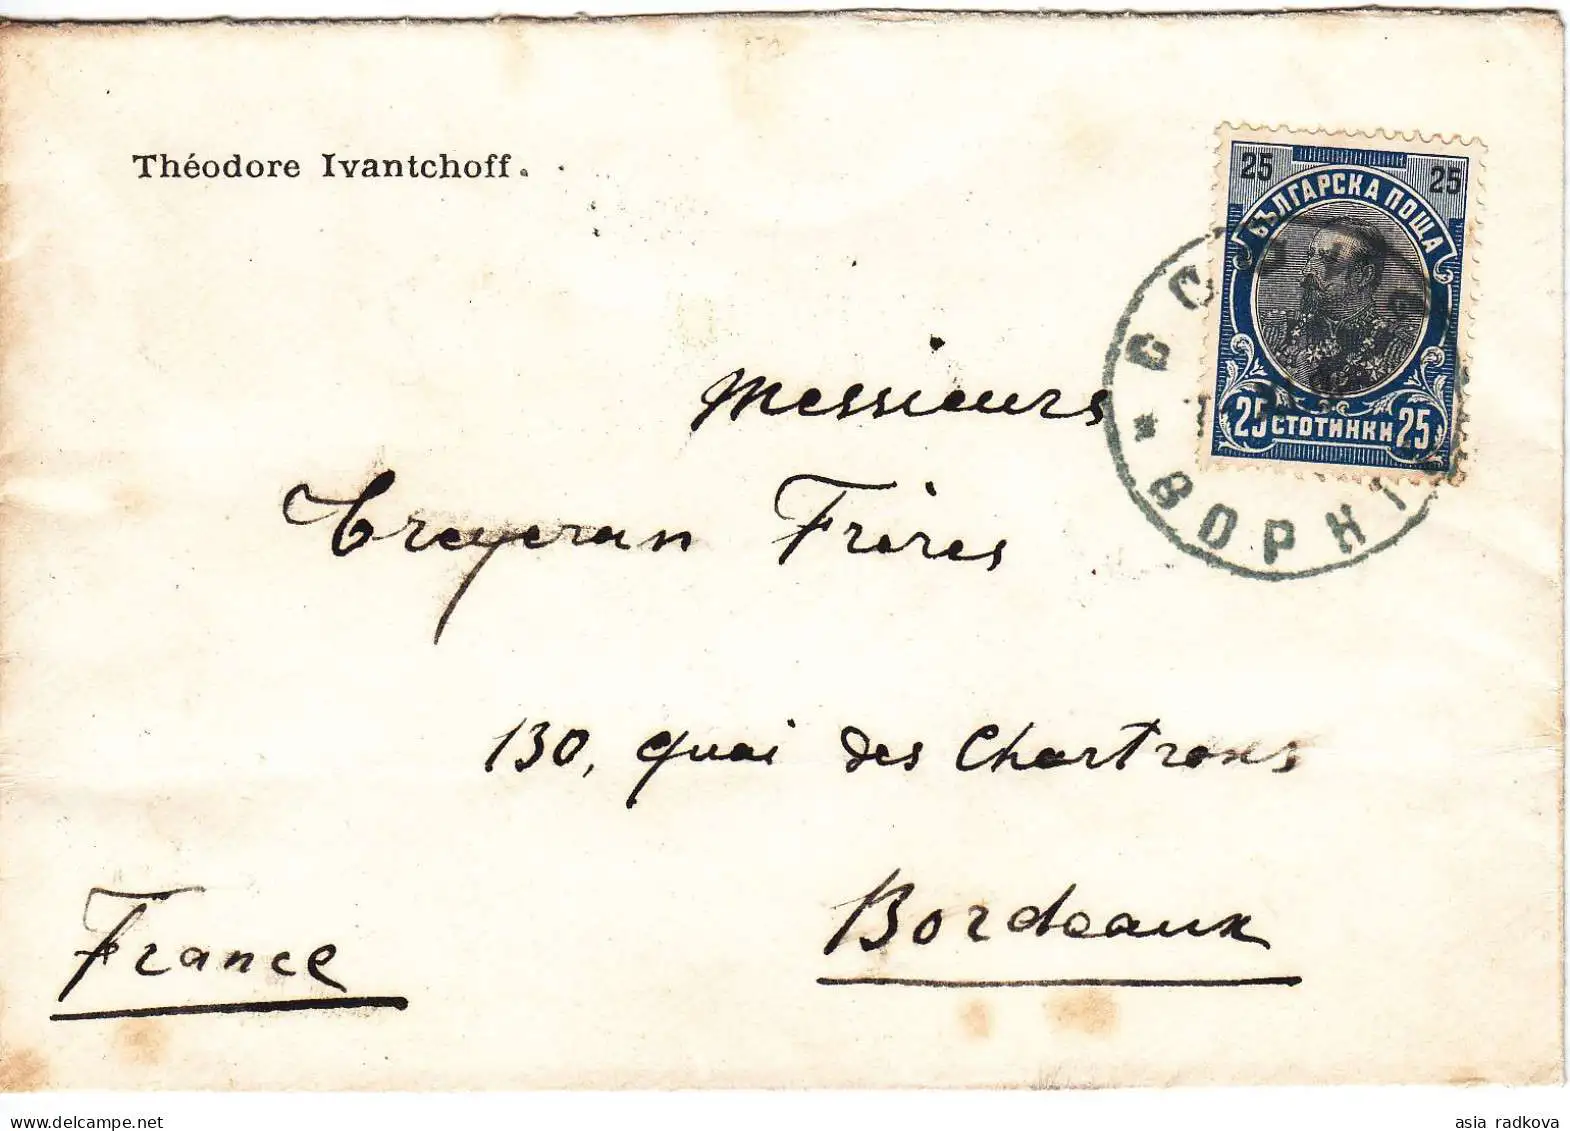 Théodore Ivantchoff.
25 25
БЪЛГАРСКА ПОЩА
25 СТОТИНКИ 25
Messieurs
Treyeran Frères
130, quai des Chartrons
Bordeaux
France
delcampe.net
asia radkova